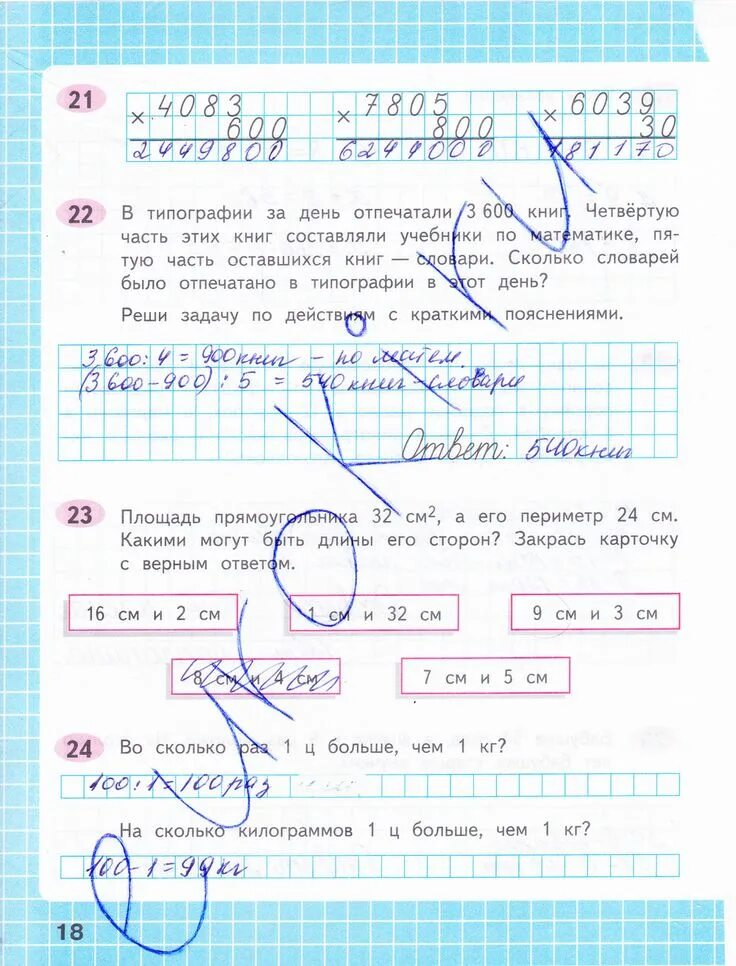 21
× 4083
600
2449800
× 7805
800
6244000
× 6039
30
181170
22
В типографии за день отпечатали 3 600 книг. Четвёртую
часть этих книг составляли учебники по математике, пя-
тую часть оставшихся книг — словари. Сколько словарей
было отпечатано в типографии в этот день?
Реши задачу по действиям с краткими пояснениями.
3 600 : 4 = 900 книг – по матем.
(3 600 – 900) : 5 = 540 книг – словари
Ответ: 540 книг
23
Площадь прямоугольника 32 см², а его периметр 24 см.
Какими могут быть длины его сторон? Закрась карточку
с верным ответом.
16 см и 2 см
1 см и 32 см
9 см и 3 см
8 см и 4 см
7 см и 5 см
24
Во сколько раз 1 ц больше, чем 1 кг?
100 : 1 = 100 раз
На сколько килограммов 1 ц больше, чем 1 кг?
100 – 1 = 99 кг
18